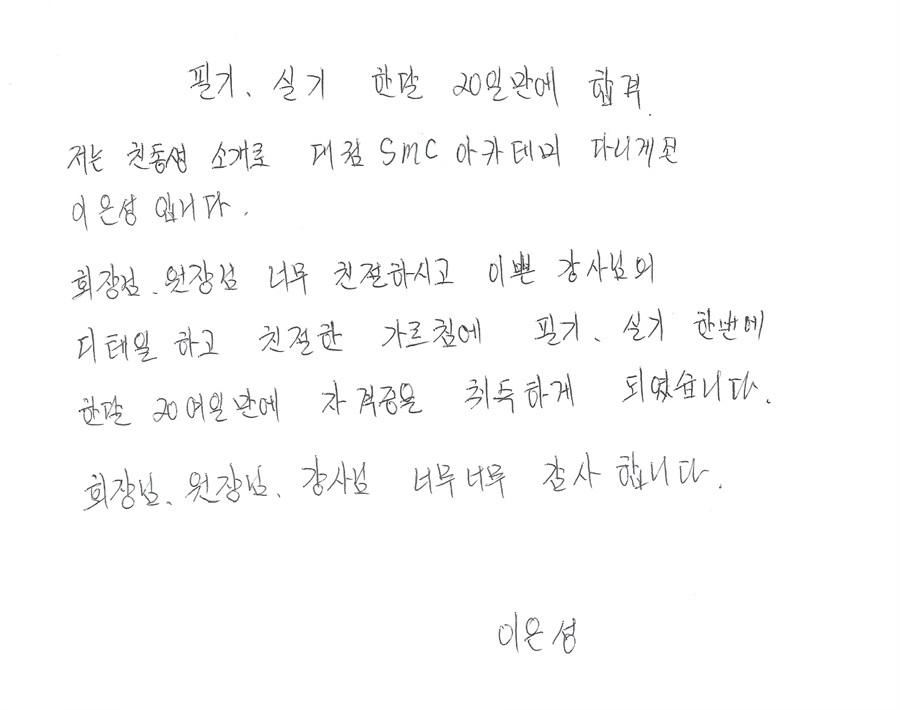 필기、실기 한달 20일만에 합격.
저는 친동생 소개로 대림 SMC 아카데미 다니게된
이은성 입니다.
회장님、원장님 너무 친절하시고 이쁜 강사님의
디테일 하고 친절한 가르침에 필기、실기 한번에
한달 20여일만에 자격증을 취득하게 되였습니다.
회장님、원장님、강사님 너무너무 감사 합니다.
이은성